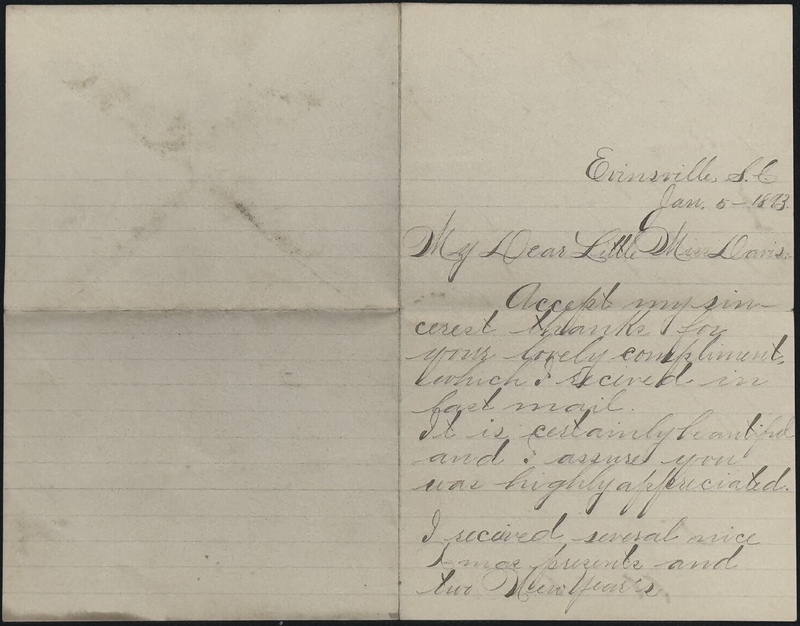 Evinsville, S.C.
Jan. 5 - 1893.
My Dear Little Miss Davis:
Accept my sin-
cerest thanks for
your lovely compliment,
which I recived in
last mail.
It is certainly beautiful
and I assure you
was highly appreciated.
I recieved several nice
X-mas presents and
two New Year's.